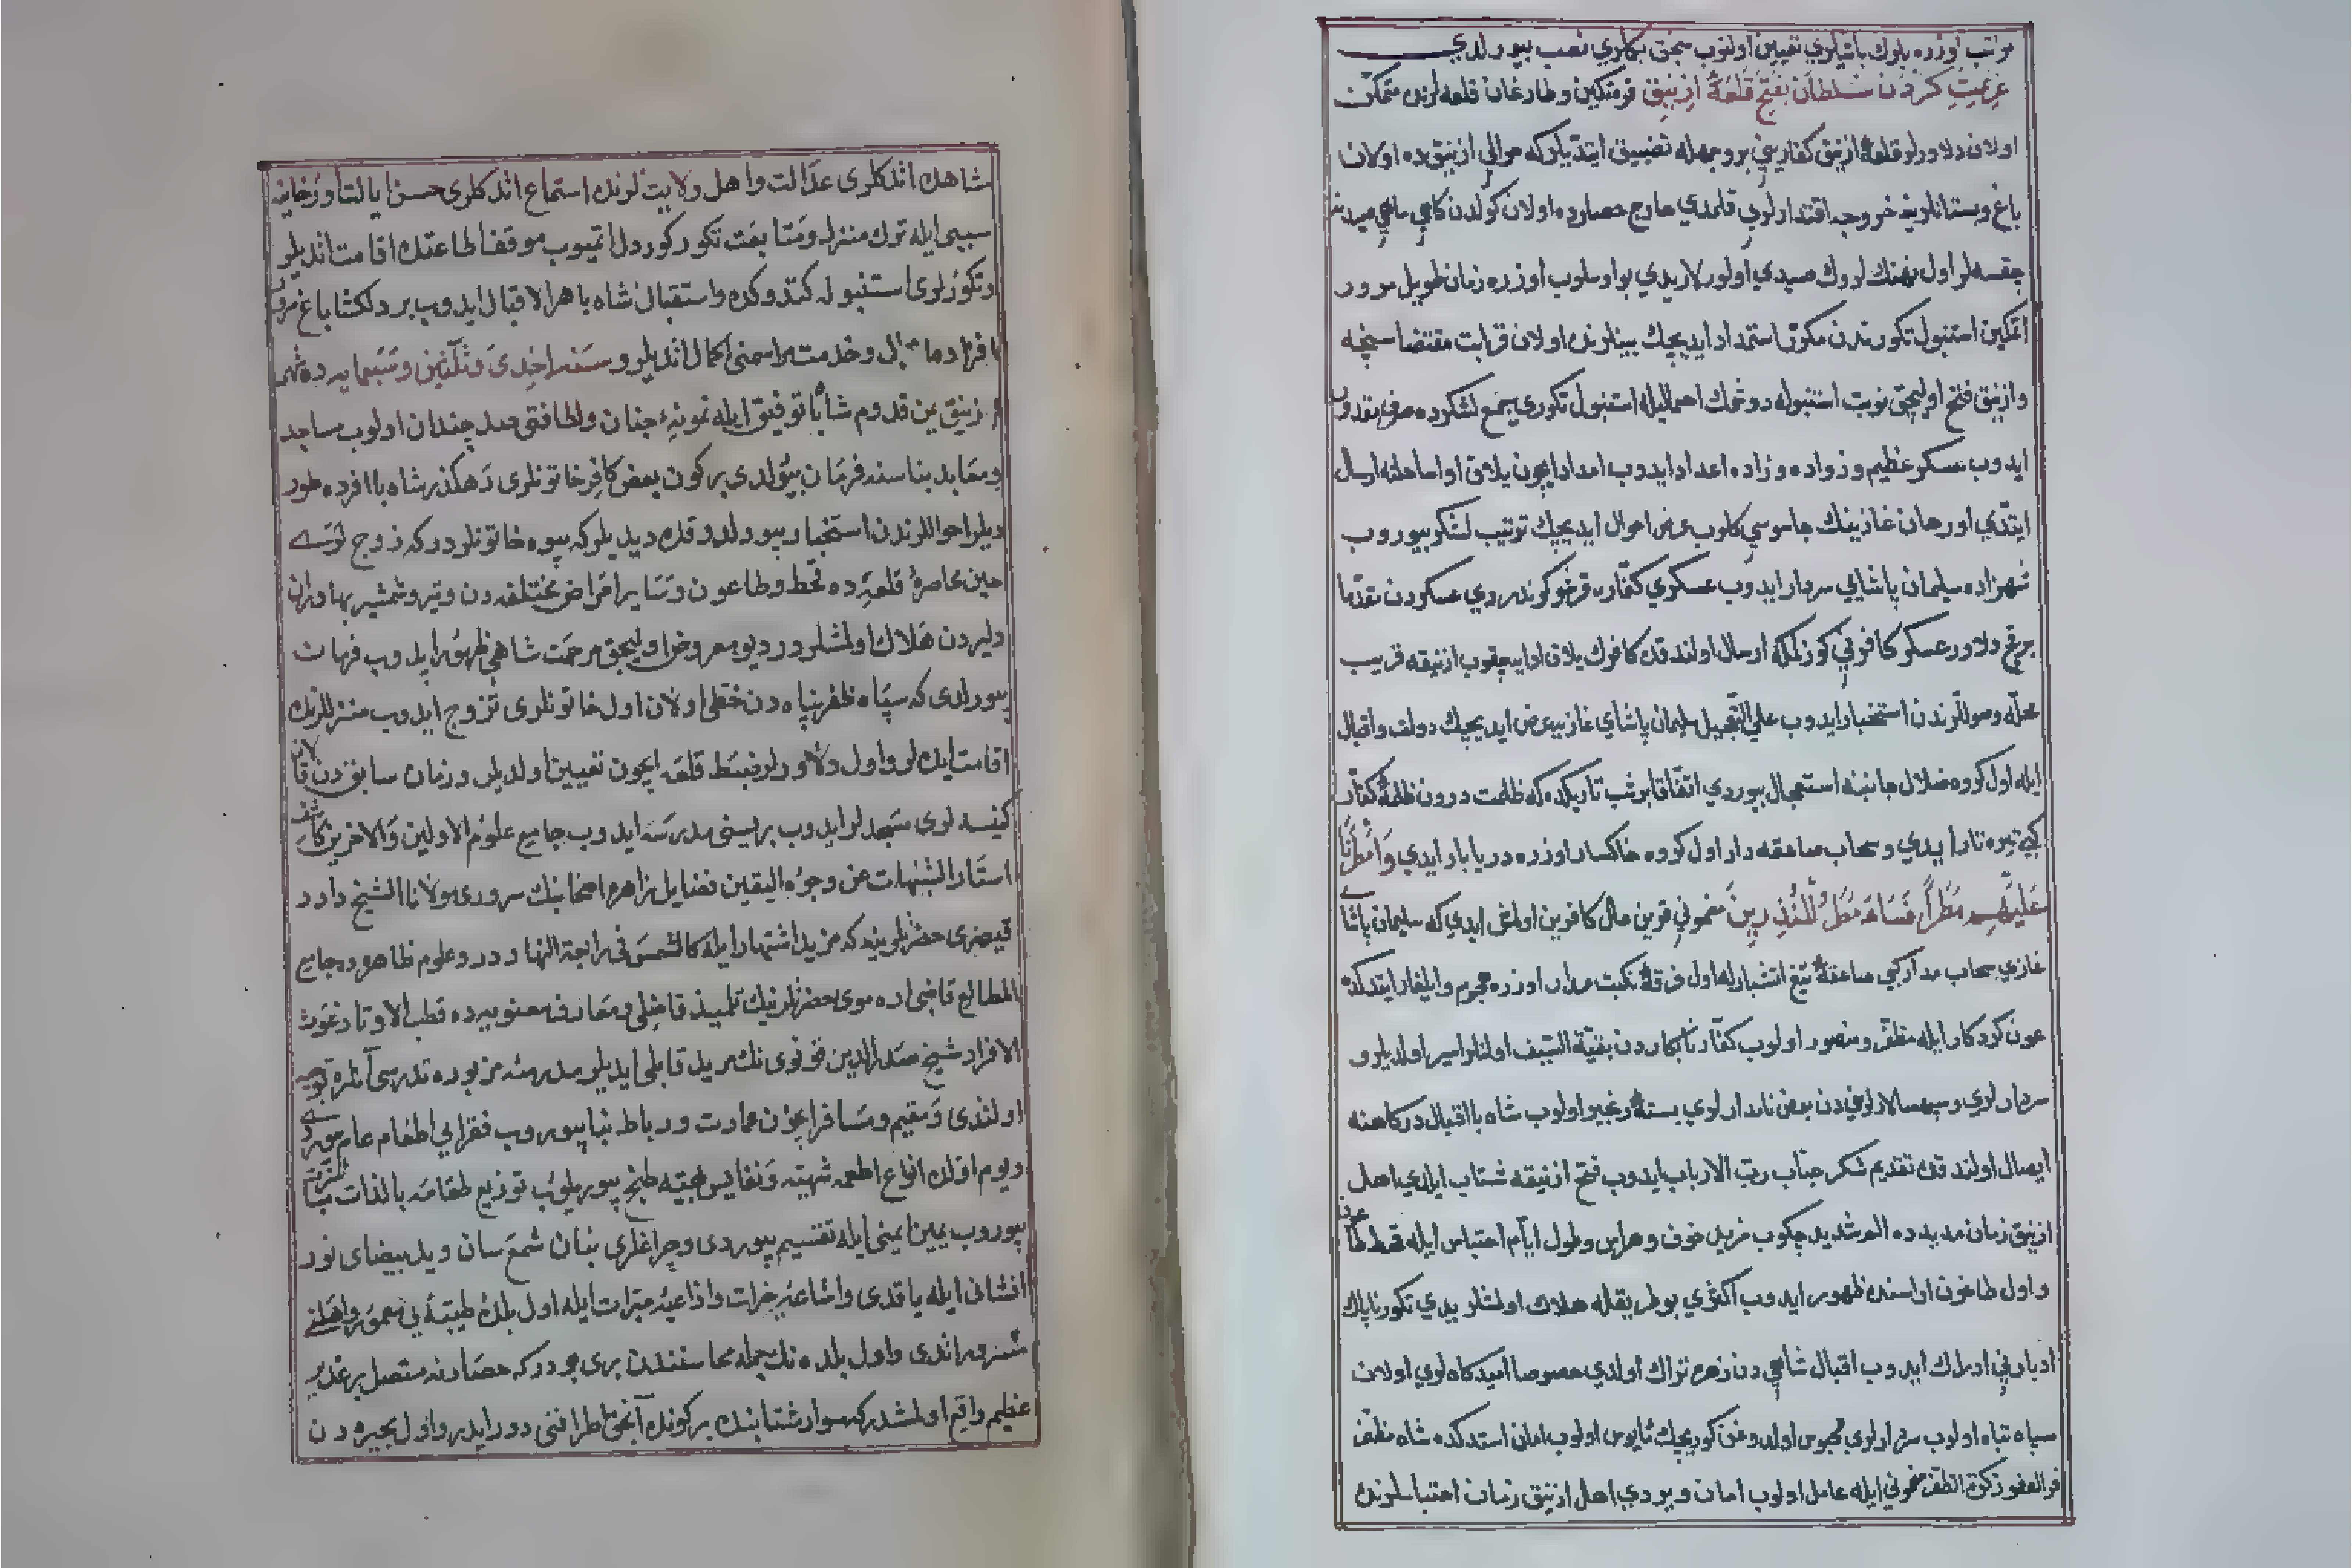 مراتب اوزره بلوك باشيلري تعيين اولنوب سنجق بكلري نصب بيورلدي
عزيمت كردن سلطان بفتح قلعۀ ازنيق قره تكين وطارغان قلعه لرنده متمكن
اولان دلاورلر قلعۀ ازنيق كفاريني بر وجهله تضييق ايتديلر كه حوالي ازنيق ده اولان
باغ وبستانلرينه خروجه اقتدارلري قلمدي خارج حصارده اولان كولدن كاهي ماهي صيدينه
چقسه لر اول نهنك لروك صيدي اولورلاريدي بو اوسلوب اوزره زمان طويل مرور
اتمكين استنبول تكورندن مكررا استمداد ايديجك بينلرنده اولان قرابت مقتضاسنجه
وازنيق فتح اوليجق نوبت استنبوله دوشمك احتماليله استنبول تكوري جمع لشكرده صرف نقدون
ايدوب عسكر عظيم وزواده وزاده اعداد ايدوب امداد ايچون يلاق اوا ساحلنه ارسال
ايتدي اورخان غازينك جاسوسي كلوب عرض احوال ايديجك ترتيب لشكر بيوروب
شهزاده سليمان پاشايي سردار ايدوب عسكري كفاره قرشو كوندردي عسكردن مقدما
بر قچ دلاور عسكر كافريني كوزلمكه ارسال اولندقده كافرك يلاق اوايه چقوب ازنيقه قريب
محله وصوللرندن استخبار ايدوب علي التعجيل سليمان پاشاي غازيه عرض ايديجك دولت واقبال
ايله اول كروه ضلال جانبنه استعجال بيوردي اتفاقا بر شب تاريكده كه ظلمت درون ظلمۀ كفار
كبي تيره تار ايدي وسحاب صاعقه دار اول كروه خاكسار اوزره دريا بار ايدي وَأَمْطَرْنَا
عَلَيْهِم مَطَراً فَسَاءَ مَطَرُ المُنْذَرِينَ مضموني قرين حال كافرين اولمش ايدي كه سليمان پاشا
غازي سحاب مدار كبي صاعقۀ تيغ اتشبار له اول فرقۀ نكبت مدار اوزره هجوم وايلغار ايتدكده
عون كردكار ايله مظفر ومنصور اولوب كفار نابكاردن بقية السيف اولنلر اسير اولديلر و
سردارلري وسپهسالارلرندن بعض نامدارلري بستۀ زنجير اولوب شاه با اقبال دركاهنه
ايصال اولندقده تقديم شكر جناب رب الارباب ايدوب فتح ازنيقه شتاب ايلدي اهل
ازنيق زمان مديده الم شديد چكوب مزيد خوف وهراس وطول ايام احتباس ايله قحط طاعون
واول طاعون اراسنده ظهور ايدوب اكثري بو طريقله هلاك اولمشلر يدي تكور ناپاك
ادباريني ادراك ايدوب اقبال شاهي دن زهره تراك اولدي خصوصا اميدكاه لري اولان
سپاه تباه اولوب سردارلري محبوس اولدوغن كوريجك مأيوس اولوب امان استدكده شاه مظفر
فو العفو زكوة الظفر مضموني ايله عامل اولوب امان ويردي اهل ازنيق زمان احتباسلرنده
مشاهده اتدكلرى عدالت واهل ولايت لرندن استماع اتدكلرى حسن ايالت اورخانيه
سببى ايله ترك منزل ومتابعت تكور كوردل اتميوب موقف اطاعتده اقامت اتديلر
وتكورلرى استنبوله كتدوكده واستقبال شاه باهر الاقبال ايدوب بر دلكشا باغ
خدمت مراسمنى اكمال اتديلر وسنه احدى وثلثين وسبعمايه ده شهر
ازنيق يمن قدوم شاه با توفيق ايله نمونۀ جنان ولطافتى صد چندان اولوب مساجد
ومعابد بناسنه فرمان بيورلدى بر كون بعض كافر خاتونلرى رهكذر شاه باافرده طور
ديلر احواللرندن استخبار بيورلدوقده ديديلر كه بيوه خاتونلردر كه زوج لرى
حين محاصرۀ قلعه ده قحط وطاعون وساير امراض مختلفه دن وتير وشمشير بهادران
دليردن هلاك اولمشلردر ديو معروض اوليجق مرحمت شاهى ظهور ايدوب فرمان
بيورلدى كه سپاه ظفرپناه دن خطى اولان اول خاتونلرى تزوج ايدوب منزللرنده
اقامت ايده لر واول دلاورلر ضبط قلعه ايچون تعيين اولديلر وزمان سابق دن قالان
كنيسه لرى مسجدلر ايدوب بريسنى مدرسه ايدوب جامع علوم الاولين والاخرين كاشف
استار الشبهات عن وجوه اليقين فضايل زاهره اصحابنك سرورى مولانا الشيخ داود
قيصرى حضرتلرينه كه مزيد اشتهار ايله كالشمس فى رابعة النهار در وعلوم ظاهرده جامع
المطالع قاضى ارموى حضرتلرينك تلميذ فاضلى ومعارف معنويه ده قطب الاوتاد غوث
الافراد شيخ صدر الدين قونوى نك مريد قابلى ايديلر مدرسۀ مزبوره تدريسى آنلره توجيه
اولندى ومقيم ومسافر ايچون عمارت ورباط بنا بيوروب فقرايه اطعام عام
ويوم اولده انواع اطعمه شهيه ونفايس بهيه طبخ بيوريلوب توزيع طعامه بالذات مباشرت
بيوروب يمين ايمنى ايله تقسيم بيوردى وچراغلرى بنان شمع سان ويد بيضاى نور
افشانى ايله ياقدى واشاعۀ خيرات واذاعۀ مبرات ايله اول بلدۀ طيبه يى معمور واهلنى
مسرور اتدى واول بلده نك جمله محاسنندن برى بودر كه حصارينه متصل بر غدير
عظيم واقع اولمشدر كه سوار شتابنده بر كونده آنجق اطرافنى دور ايدر واول بحيره دن